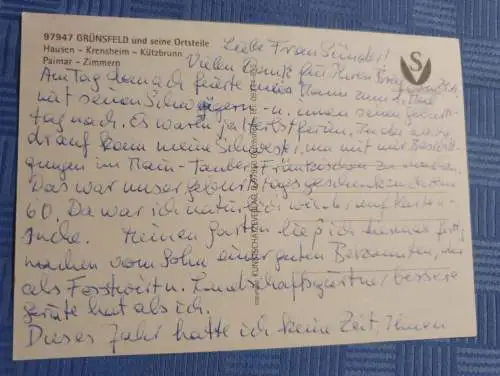 97947 GRÜNSFELD und seine Ortsteile
Hausen - Krensheim - Kützbrunn
Paimar - Zimmern
Liebe Frau
Vielen Dank für Ihren
Am Tag danach feierte mein Mann zum
mit seinen Schwägern u. innen seinen Geburts-
tag nach. Es waren ja Herbstferien. In der
drauf kam meine Schwester, um mit mir Besichti-
gungen im Main-Tauber-Fränkischen zu machen.
Das war unser Geburtstagsgeschenk
60. Da war ich natürlich wieder auf Karten-
suche. Meinen Garten ließ ich
machen vom Sohn einer guten Bekannten, der
als Forstwirt u. Landschaftsgärtner bessere
Geräte hat als ich.
Dieses Jahr hatte ich keine Zeit, Ihnen